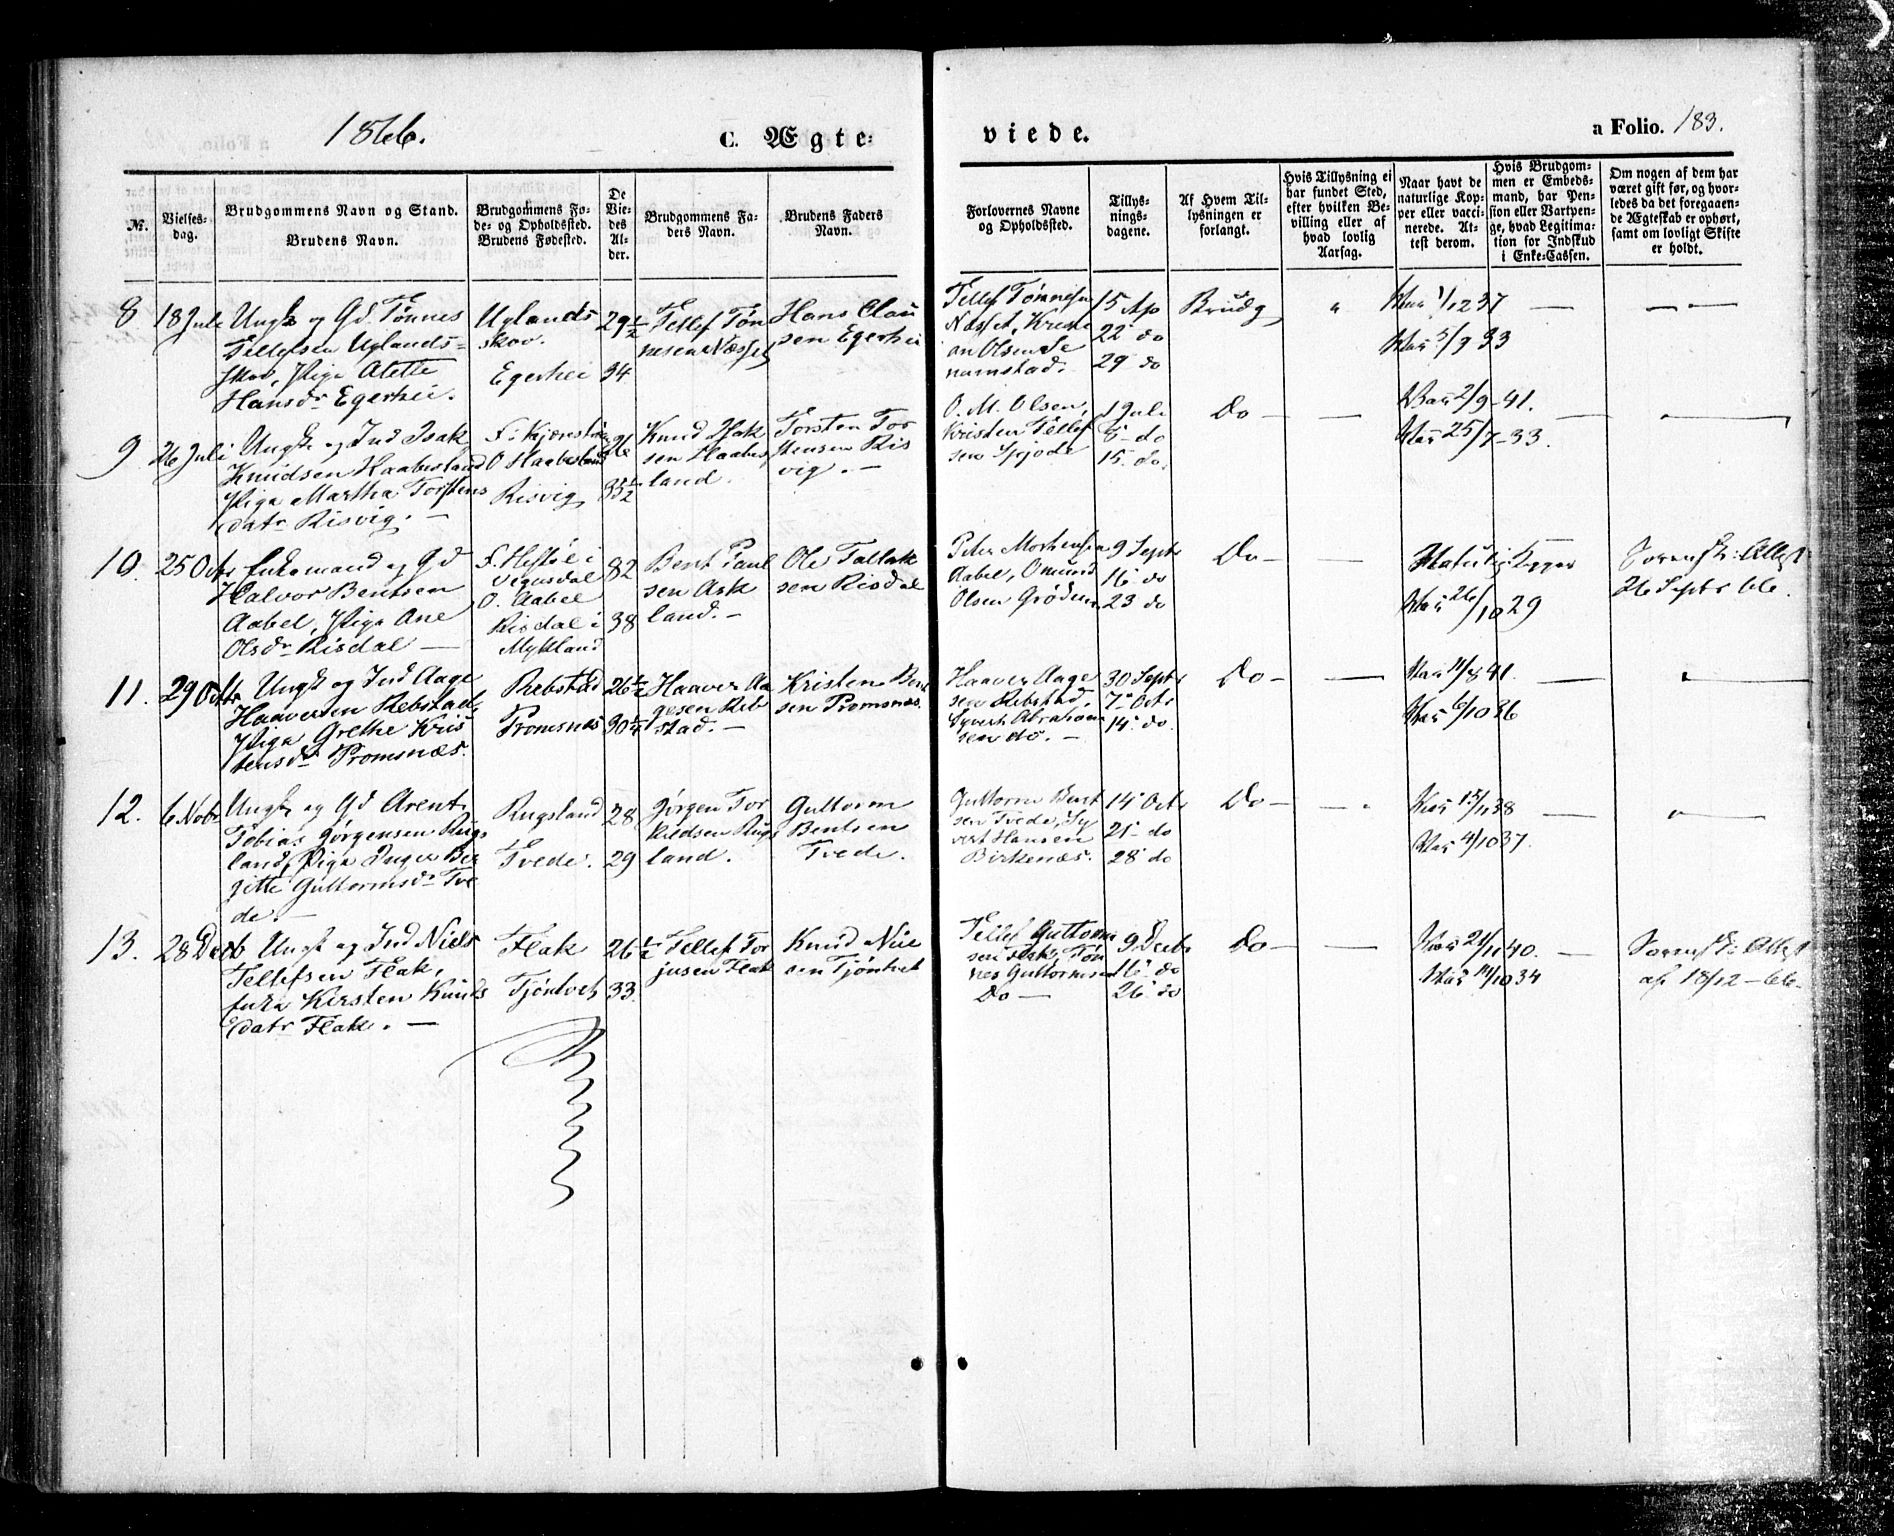 1866.
C. Ægte-
viede.
a Folio. 183.
№.
Vielses-
dag.
Brudgommens Navn og Stand.
Brudens Navn.
Brudgommens Fø-
de- og Opholdssted.
Brudens Fødested.
De
Vie-
des
Al-
der.
Brudgommens Fa-
ders Navn.
Brudens Faders
Navn.
Forlovernes Navne
og Opholdssted.
Tillys-
nings-
dagene.
Af Hvem Til-
lysningen er
forlangt.
Hvis Tillysning ei
har fundet Sted,
efter hvilken Be-
villing eller af
hvad lovlig
Aarsag.
Naar havt de
naturlige Kop-
per eller vacci-
nerede. At-
test derom.
Hvis Brudgom-
men er Embeds-
mand, har Pen-
sion eller Vartpen-
ge, hvad Legitima-
tion for Indskud
i Enke-Cassen.
Om nogen af dem har
været gift før, og hvor-
ledes da det foregaaen-
de Ægteskab er ophørt,
samt om lovligt Skifte
er holdt.
8
18 Juli
Ungk og Gd. Tønnes
Tellefsen Uglands-
skov, Pige Alette
Hansdr Egerhei.
Uglands
skov.
Egerhei
29 1/2
34
Tellef Tøn
nesen Næsset
Hans Clau
sen Egerhei
Tellef Tønnesen
Næsset, Kristi
an Olsen
15 Ap
22 do
29 do
Brudg
"
1/12 37
5/9 33
9
26 Juli
Ungk og Ind Isak
Knudsen Haabesland
Pige Martha Torstens
datr Risvig. —
O Haabesland
Risvig
26
35 1/2
Knud Isak
sen Haabes
land.
Torsten Tor
stensen Ris
vig. —
O. M. Olsen,
Kristen Tellef
sen
1 Juli
8- do
15. do.
Do —
—
2/9 - 41.
25/7 - 33.
—
10.
25 Octr
Enkemand og Gd
Halvor Bentsen
Aabel, Pige Ane
Olsdr Risdal —
F. Heftøl i
Vegusdal
O. Aabel
Risdal i
Mykland
82
38
Bent Paul
sen Ask
land. —
Ole Tallak
sen Risdal
Peter Mortensen
Aabel, Omund
Olsen Grødum
9 Septr
16 do
23 do
Do —
—
Naturlig Kopper
26/10 29
Sorensk: Attest
26 Septr 66.
11.
29 Octr
Ungk og Ind Aage
Haaversen Rebstad,
Pige Grethe Kris
tensdr Promsnæs.
Rebstad
Promsnæs
26 1/2
30 1/4
Haaver Aa
gesen Reb
stad. —
Kristen Bent
sen Promsnæs.
Haaver Aage
sen Rebstad,
Syvert Abraham
sen do. —
30 Septr
7- Octr
14. do.
Do —
—
11/8 41.
6/10 36
—
12.
6 Nobr
Ungk og Gd Arent
Tobias Jørgensen Rugs
land, Pige Inger Bir
gitte Guttormsdr Tve
de. —
Rugsland
Tvede.
28
29
Jørgen Tor
kildsen Rugs
land.
Guttorm
Bentsen
Tvede.
Guttorm Bent
sen Tvede, Sy
vert Hansen
Birkenæs.
14 Octr
21- do
28 do
Do —
—
38
4/10 37.
—
13.
28 Decb
Ungk og Ind Niels
Tellefsen Flak,
Kirsten Knuds
datr Flak. —
Flak
Tjøntvet
26 1/2
33.
Tellef Tor
jusen Flak
Knud Niel
sen Tjøntvet
Tellef Guttorm
sen Ask, Tøn
nes Guttormsen
Do —
9 Decbr
16 do
26 do
Do —
—
40.
11/10 34
—
Sorensk: Attest
af 18/12 - 66.